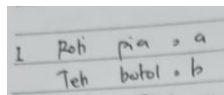 1 Roti pia = a
Teh botol = b